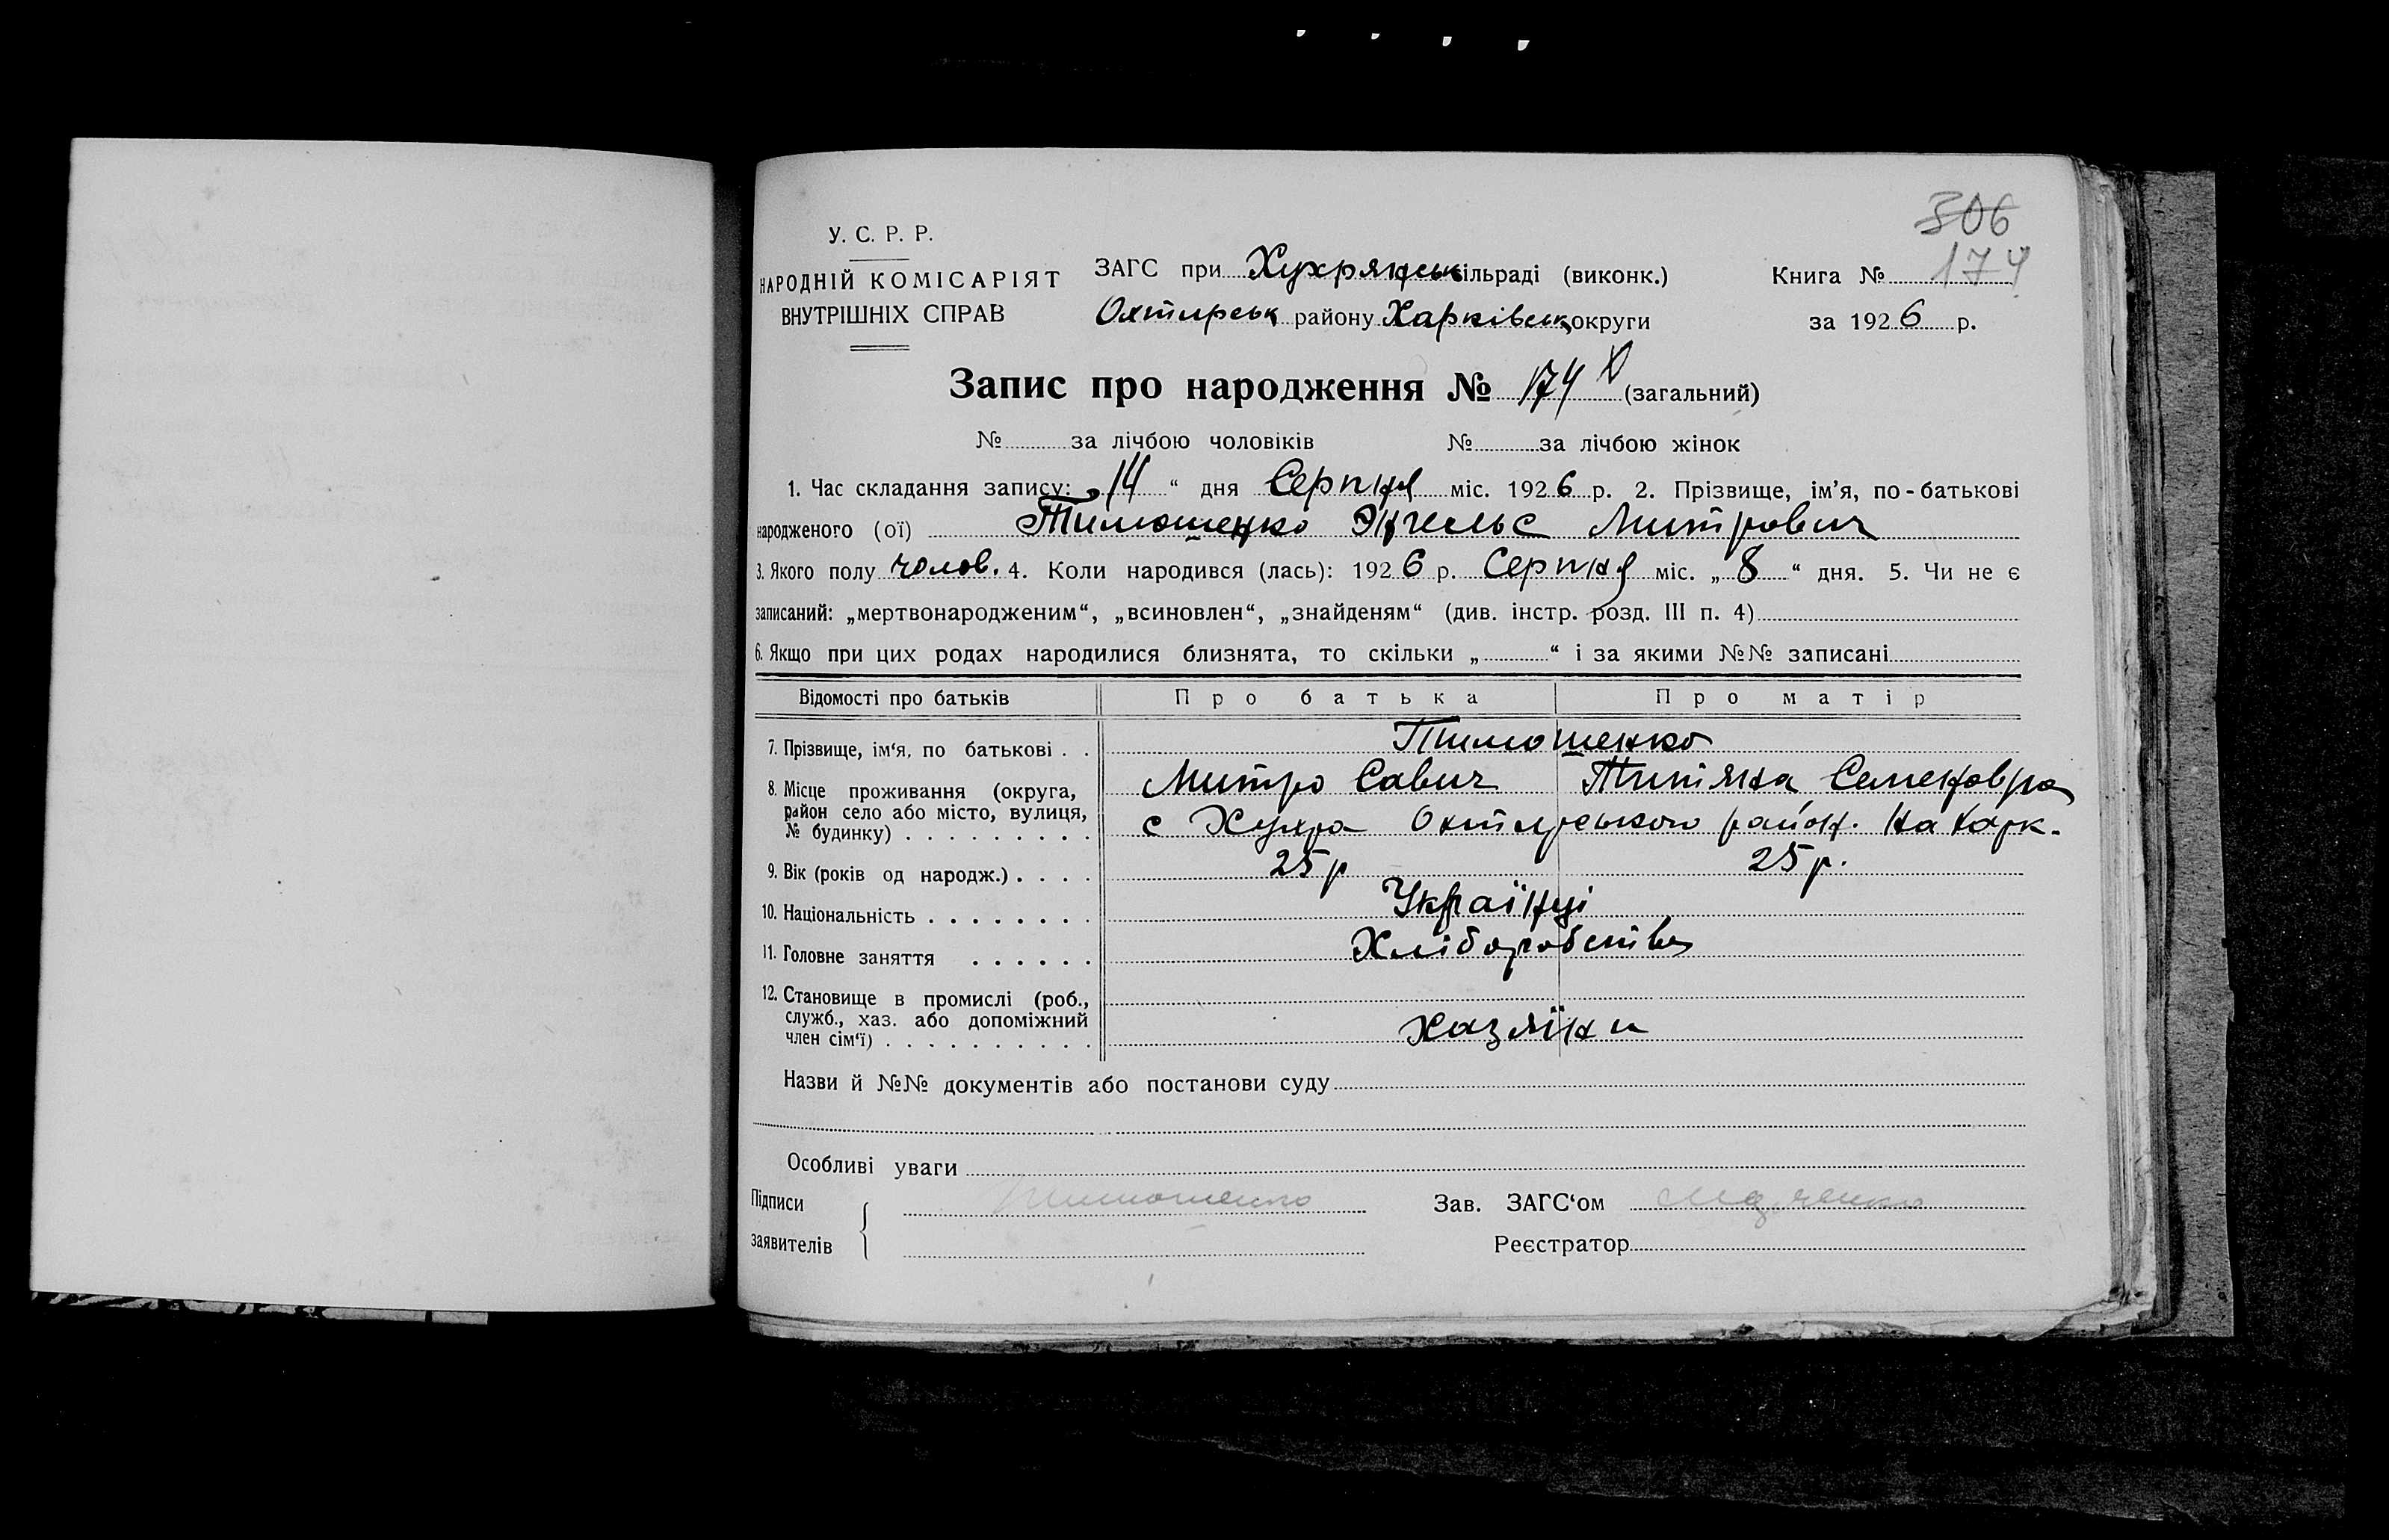 306
У. С. Р. Р.
НАРОДНІЙ КОМІСАРІЯТ
ВНУТРІШНІХ СПРАВ
ЗАГС при Хухрянськ сільраді (виконк.)
Охтирськ району Харківськ округи
Книга № 174
за 1926 р.
Запис про народження № 174 (загальний)
№ за лічбою чоловіків № за лічбою жінок
1. Час складання запису: „14“ дня Серпня міс. 1926 р. 2. Прізвище, ім’я, по-батькові
народженого (ої) Тимошенко Энгельс Митрович
3. Якого полу чолов. 4. Коли народився (лась): 1926 р. Серпня міс. „8“ дня. 5. Чи не є
записаний: „мертвонародженим“, „всиновлен“, „знайденям“ (див. інстр. розд. III п. 4)
6. Якщо при цих родах народилися близнята, то скільки „ “ і за якими №№ записані
Відомості про батьків Про батька Про матір
7. Прізвище, ім‘я, по батькові . . Тимошенко
Митро Савич Титяна Семеновна
8. Місце проживання (округа,
район село або місто, вулиця,
№ будинку) . . . . . . . . .
с Хухра Охтирського район. на Харк.
9. Вік (років од народж.) . . . . 25 р 25 р.
10. Національність . . . . . . . . Українці
11. Головне заняття . . . . . . Хліборобство
12. Становище в промислі (роб.,
служб., хаз. або допоміжний
член сім‘ї) . . . . . . . . . . Хазяїни
Назви й №№ документів або постанови суду
Особливі уваги
Підписи
заявителів
Тимошенко
Зав. ЗАГС‘ом
Реєстратор